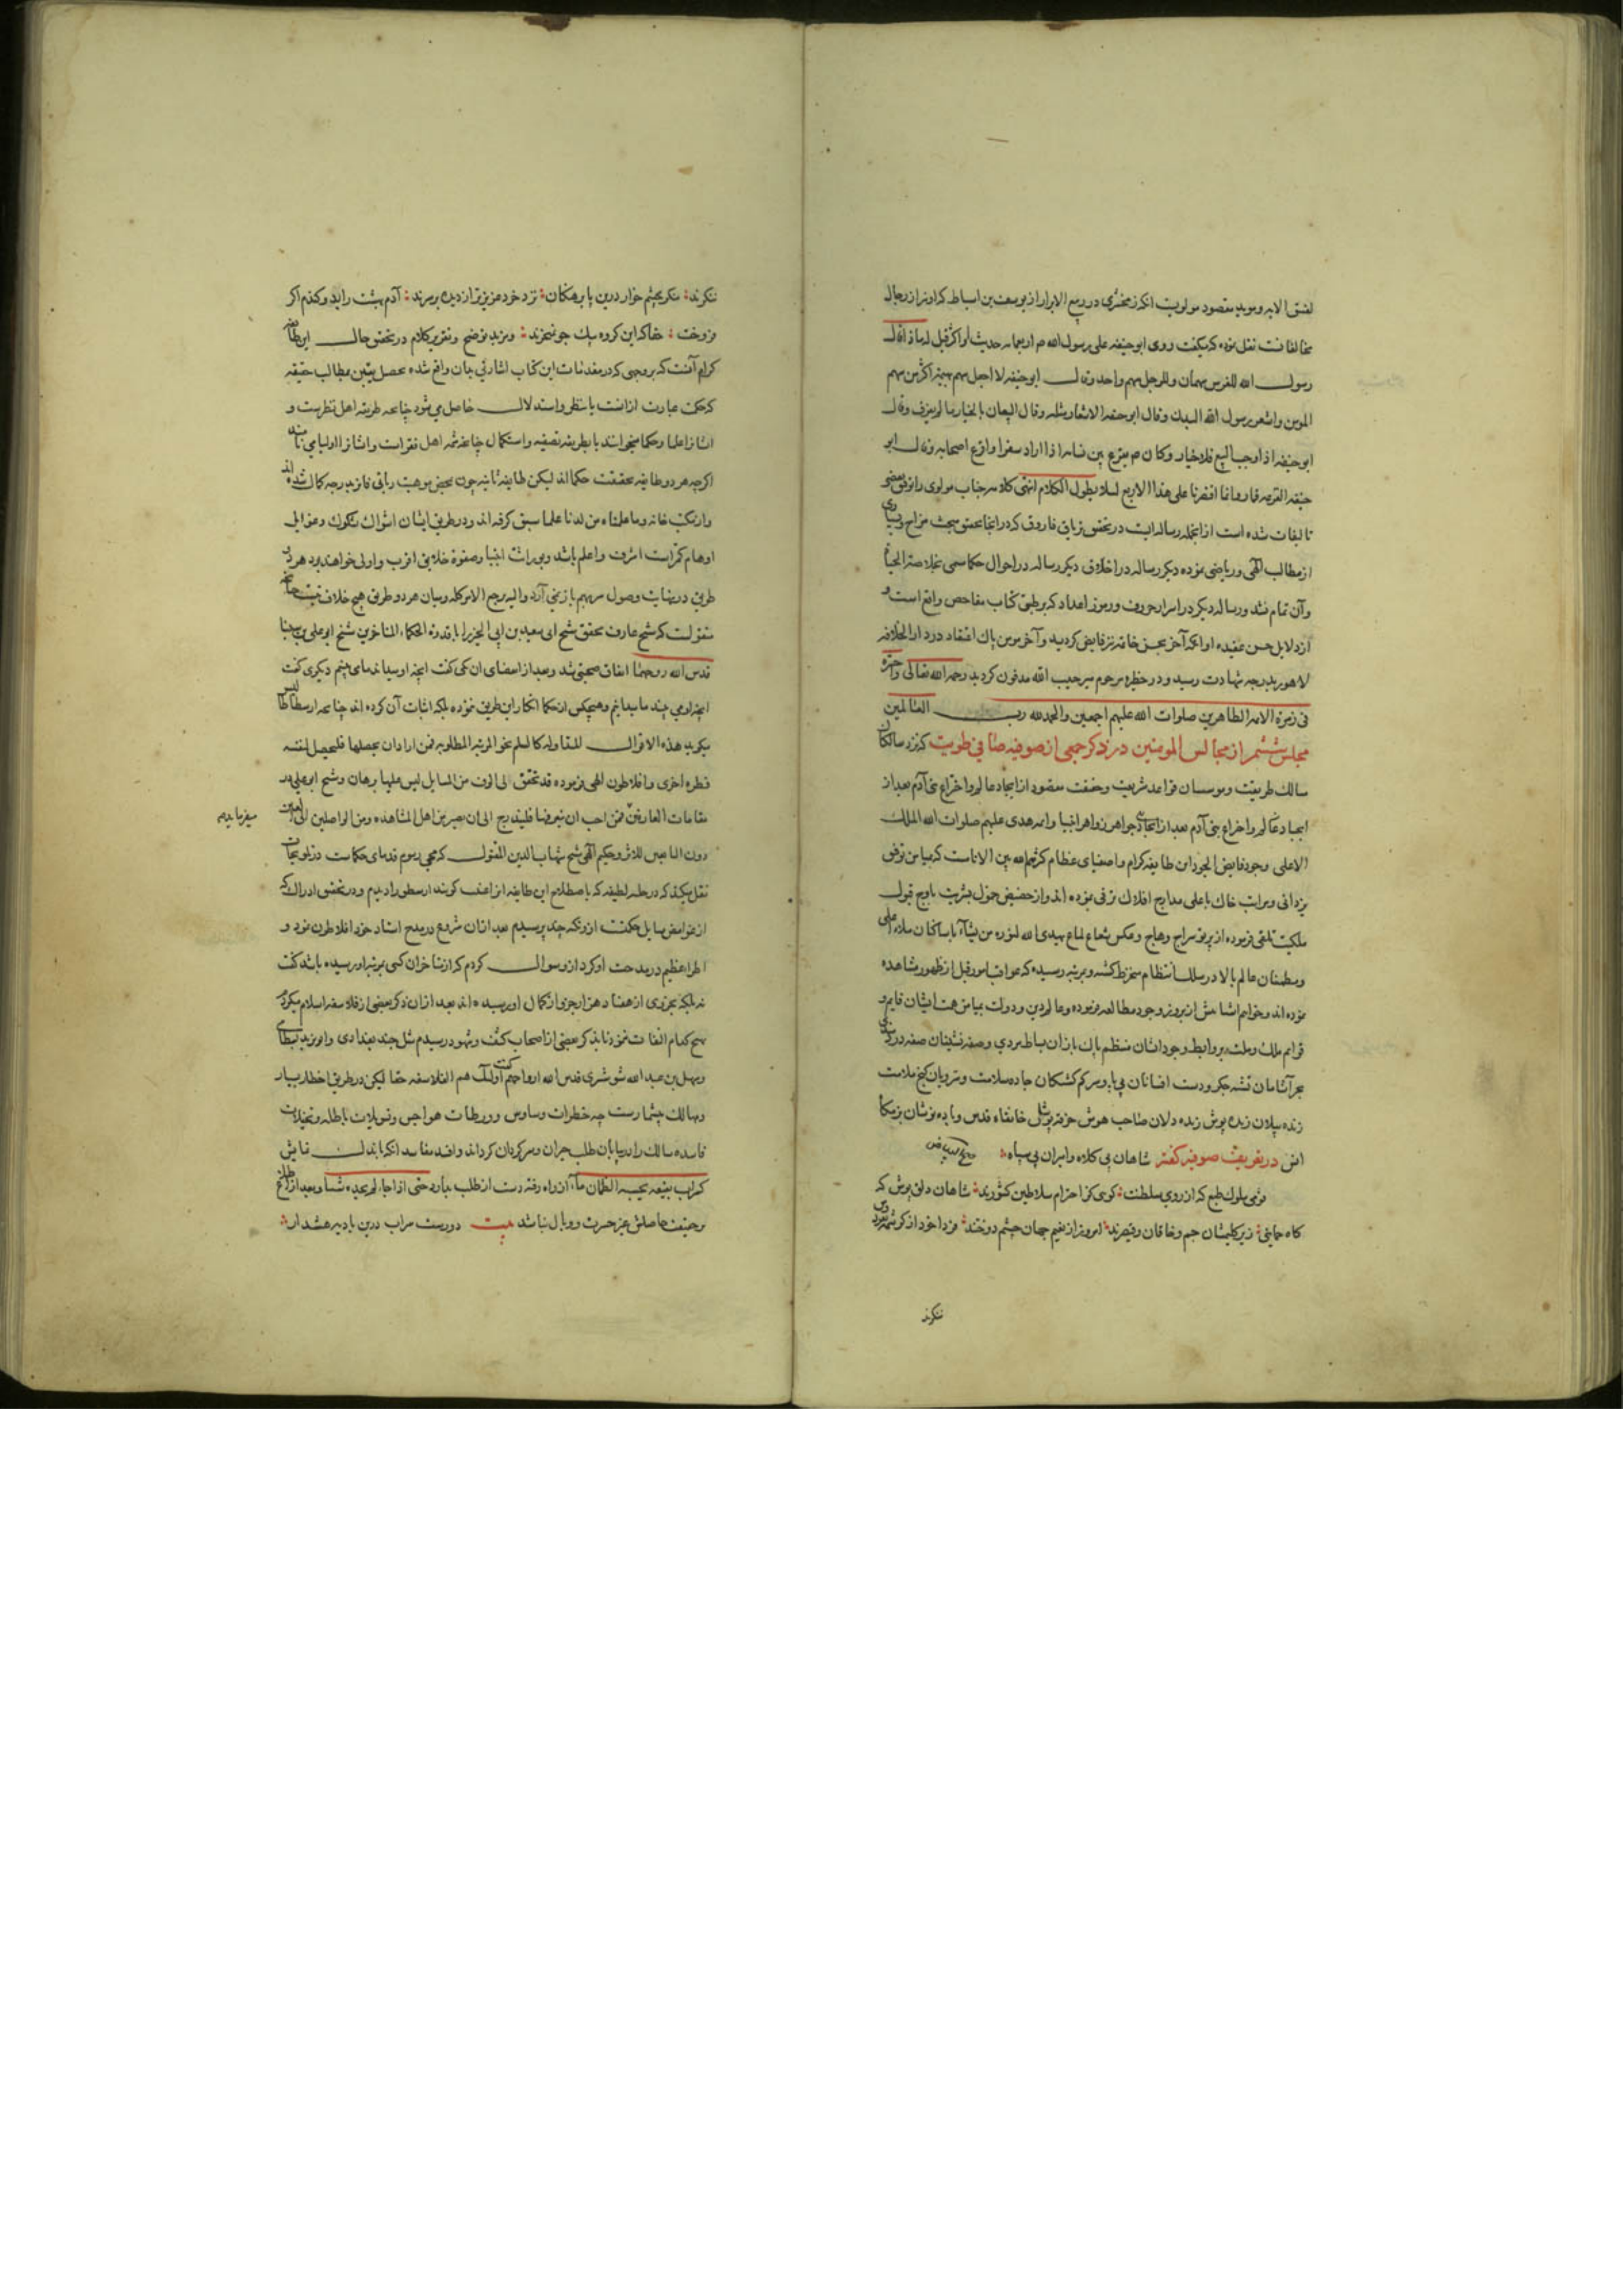 لفسق الامه ومويد مقصود مولويت انكه زمخشرى در ربيع الابرار از يوسف بن اسباط كه او نيز از رجال
مخالفانست نقل نموده كه ميگفت روى ابو حنيفه على رسول الله ص اربعمايه حديث او اكثر قيل له ماذا قال
رسول الله للفرس سهمان وللرجل سهم واحد وقال ابو حنيفه لا اجعل سهم بهيمة اكثر من سهم
المومن واشعر رسول الله البدن وقال ابو حنيفه الاشعار مثله وقال البيعان بالخيار ما لم يفترقا وقال
ابو حنيفه اذا وجب البيع فلا خيار وكان ص يقرع بين نسائه اذا اراد سفرا واقرع اصحابه وقال ابو
حنيفه القرعه قمار وانما اقتصرنا على هذا الاربع لئلا يطول الكلام انتهى كلامه جناب مولوى را توفيق بعضى
تاليفات شده است از انجمله رساله ايست در تحقيق ترياق فاروق كه در انجا تحقيق مبحث مزاج وبسيارى
از مطالب الهى ورياضى نموده ديگر رساله در اخلاق ديگر رساله در احوال حكما مسمى بخلاصة الحيات
وآن تمام نشد ورساله ديگر در اسرار حروف ورموز اعداد كه بر طبق كتاب مفاحص واقع است و
از دلايل حسن عقيده او انكه آخر بحسن خاتمه نيز فايض گرديد وآخر مومن پاك اعتقاد در دار الخلافه
لاهور بدرجه شهادت رسيد ودر حظيره مرحوم مير حبيب الله مدفون گرديد رحمه الله تعالى وحشره
فى زمرة الائمه الطاهرين صلوات الله عليهم اجمعين والحمد لله رب العالمين
مجلس ششم از مجالس المومنين در ذكر جمعى از صوفيه صافى طويت كه نزد سالكان
مسالك طريقت وموسسان قواعد شريعت وحقيقت مقصود از ايجاد عالم واختراع بنى آدم بعد از
ايجاد عالم واختراع بنى آدم بعد از ايجاد جواهر زواهر انبيا وائمه هدى عليهم صلوات الله الملك
الاعلى وجود فايض الجود اين طايفه كرام واصفياى عظام كثرهم الله بين الانام است كه بميامن توفيق
يزدانى ومراتب خاك باعلى مدارج افلاك ترقى نموده اند واز حضيض خمول بشريت باوج قبول
ملكيت تلقى فرموده از پرتو سراج وهاج وعكس شعاع لماع يهدى الله لنوره من يشاء با ساكنان ملاء اعلى
ومطمئنان عالم بالا در سلك انتظام منخرط گشته وبمرتبه رسيده كه عواقب امور قبل از ظهور مشاهده
نموده اند وخواتم اشيا پيش از بروز وجود مطالعه فرموده وعالم دين ودولت بميامن همت ايشان قايم و
قوايم ملك وملت بروابط وجود ايشان منتظم پاك بازان بساط مردى وصفه نشينان صفه دردمندى
بحر آشامان تشنه جگر ودست افشانان بى پا وسر گم گشتگان جاده سلامت ومنزويان كنج ملامت
زنده پيلان ژنده پوش زنده دلان صاحب هوش خرقه پوش خانقاه قدس وباده نوشان بزمگاه
انس در تعريف صوفيه گفته شاهان بى كلاه واميران بى سپاه
صح البياض
قومى ملوك طبع كه از روى سلطنت گوئى كز احترام سلاطين كشورند شاهان دلق پوش كه
گاه حمايتى زير گليمشان جم وخاقان وقيصرند امروز از نعيم جهان چشم دوختند فردا خود از كرشمه بفردوس
ننگرند
ننگرند منگر بچشم خوار درين پا برهنگان نزد خرد عزيزتر از ديده برسرند آدم بهشت را بدو گندم اگر
فروخت حقا كه اين گروه بيك جو نميخرند ومزيد توضيح وتقرير كلام در تحقيق حال اين طايفه
كرام آنست كه بر وجهى كه در مقدمات اين كتاب اشارتى بدان واقع شده تحصيل يقين بمطالب حقيقيه
كه حكمت عبارت از انست يا بنظر واستدلال حاصل مى شود چنانچه طريقه اهل نظرست و
ايشانرا علما وحكما ميخوانند يا بطريقه تصفيه واستكمال چنانچه شيوه اهل فقر است وايشانرا اوليا مى نامند
اگرچه هر دو طايفه بحقيقت حكما اند ليكن طايفه ثانيه چون بمحض موهبت ربانى فايز بدرجه كمال شده اند
واز مكتب خانه وعلمناه من لدنا علما سبق گرفته اند ودر طريق ايشان اشواك شكوك وغوايل
اوهام كمتر است اشرف واعلم باشد وبوراثت انبيا وصفوة خلايق اقرب واولى خواهند بود هر دو
طريق در نهايت وصول سر بهم باز مى آرد واليه يرجع الامر كله وميان هر دو طريق هيچ خلاف نيست چنانچه
منقولست كه شيخ عارف محقق شيخ ابو سعيد بن ابى الخير را با قدوة الحكماء المتاخرين شيخ ابو على بن سينا
قدس الله روحهما اتفاق صحبتى شد وبعد از انقضاى آن يكى گفت انچه او ميداند ما مى بينيم ديگرى گفت
انچه او مى بيند ما ميدانيم وهيچكس از حكما انكار اين طريق ننموده بلكه اثبات آن كرده اند چنانچه ارسطاطاليس
ميگويد هذه الاقوال المتداوله كالسلم نحو المرتبه المطلوبه فمن اراد ان يحصلها فليحصل لنفسه
فطرة اخرى وافلاطون الهى فرموده قد تحقق لى الوف من المسايل ليس عليها برهان وشيخ ابو على در
مقامات العارفين فمن احب ان يتعرفها فليتدرج الى ان يصير من اهل المشاهده ومن الواصلين الى العين
ميفرمايد
دون السامعين للاثر وحكيم الهى شيخ شهاب الدين المقتول كه محيى رسوم قدماى حكماست در تلويحات
نقل ميكند كه در خلسه لطيفه كه باصطلاح اين طايفه انرا غيبت گويند ارسطو را ديدم ودر تحقيق ادراك كه
از غوامض مسايل حكمتست ازو نكته چند پرسيدم بعد از آن شروع در مدح استاد خود افلاطون نمود و
اطراء عظيم در مدحت او كرد ازو سوال كردم كه از متاخران كسى بمرتبه او رسيده باشد گفت
نه بلكه بجزوى از هفتاد هزار جزو از كمال او رسيده اند بعد از آن ذكر بعضى از فلاسفه اسلام ميكردم
بهيچ كدام التفات ننمود تا بذكر بعضى از اصحاب كشف وشهود رسيدم مثل جنيد بغدادى وابو يزيد بسطامى
وسهل بن عبد الله شوشترى قدس الله ارواحهم گفت اولئك هم الفلاسفه حقا ليكن در طريق اخطار بسيار
ومهالك بيشمارست چه خطرات وساوس وورطات هواجس وتسويلات باطله وتخيلات
فاسده سالك را در بيابان طلب حيران وسرگردان گرداند وافسد مفاسد انكه باندك نمايش
كسراب بقيعة يحسبه الظمان ماء از راه رفته دست از طلب بدارد حتى اذا جاءه لم يجده شيئا وبعد از اطلاع
بر حقيقت حاصلش غير حسرت ووبال نباشد بيت دورست سراب درين باديه هشدار